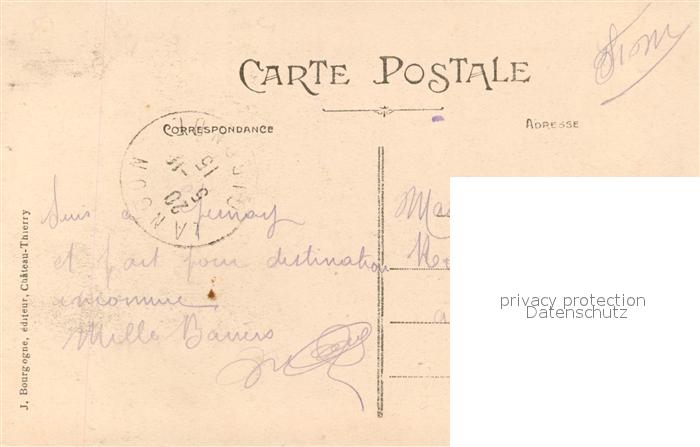 CARTE POSTALE
CORRESPONDANCE
ADRESSE
LANGON
GIRONDE
Suis à Epernay
et part pour destination
inconnue
Mille Baisers
J. Bourgogne, éditeur, Château-Thierry
privacy protection
Datenschutz